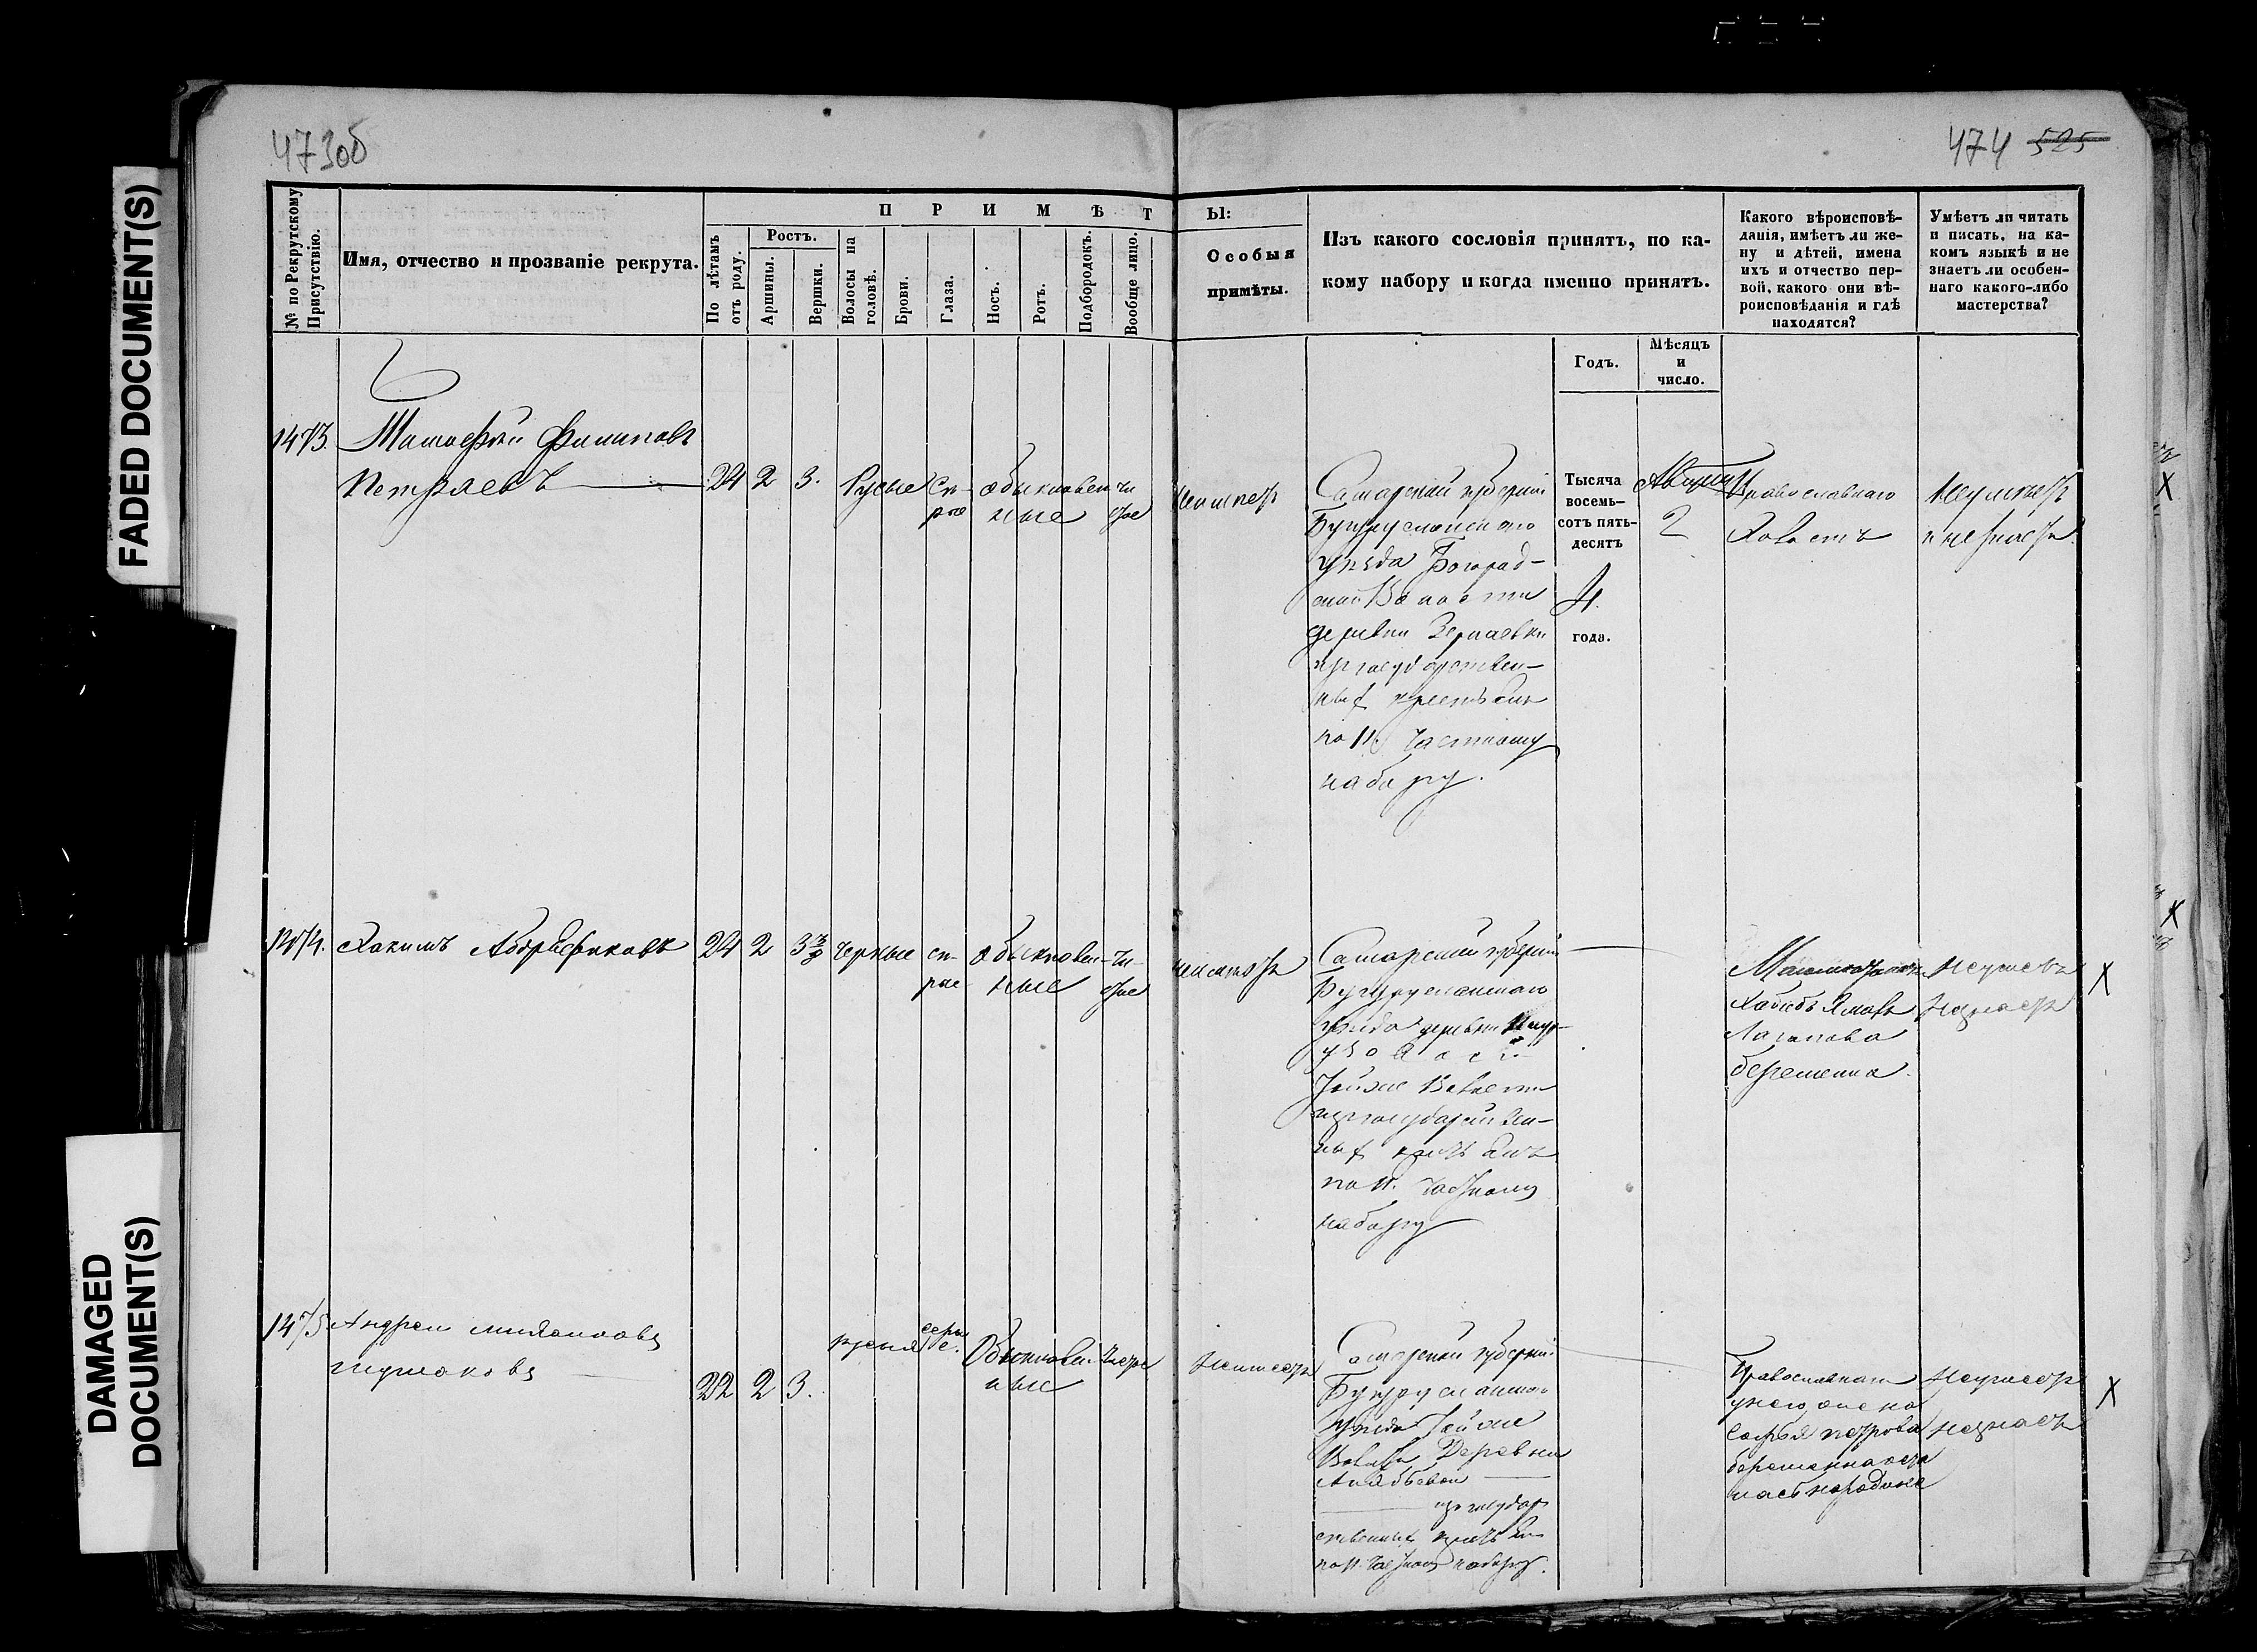 FADED DOCUMENT(S)
DAMAGED
DOCUMENT(S)
473об
474 525
№ по Рекрутскому
Присутствію.
Имя, отчество и прозваніе рекрута.
П Р И М Ѣ Т Ы:
По лѣтамъ
отъ роду.
Ростъ.
Аршины.
Вершки.
Волосы на
головѣ.
Брови.
Глаза.
Носъ.
Ротъ.
Подбородокъ.
Вообще лицо.
Особыя
примѣты.
Изъ какого сословія принятъ, по ка-
кому набору и когда именно принятъ.
Годъ.
Мѣсяцъ
и
число.
Какого вѣроисповѣ-
данія, имѣетъ ли же-
ну и дѣтей, имена
ихъ и отчество пер-
вой, какого они вѣ-
роисповѣданія и гдѣ
находятся?
Умѣетъ ли читать
и писать, на ка-
комъ языкѣ и не
знаетъ ли особен-
наго какого-либо
мастерства?
1473.
Филиповъ
Петряевъ
24 2 3.
Русые
Сѣ-
рые
обыкновен-
ные
чи-
стое
Самарской губерніи
Бугурусланскаго
уѣзда Богород-
ской Волости
деревни
изъ государствен-
ныхъ крестьянъ
по 11. Частному
набору.
Тысяча
восемь-
сотъ пять-
десятъ
4.
года.
Августа
2
Православнаго
Холостъ
Неумѣетъ
и незнаетъ.
1474.
Хакимъ
24 2 3
Черные
сѣ-
рые
обыкновен-
ные
чи-
стое
неимѣетъ
Самарской губерніи
Бугурусланскаго
уѣзда деревни
Волости
изъ государствен-
ныхъ крестьянъ
по 11. Частному
набору
беременна.
Неумѣетъ
Незнаетъ
X
1475
Андрей
22 2 3.
русыя
серы
е.
Обыкновен
ные
Чистое
Неимеетъ
Самарской губерніи
Бугурусланскаго
уѣзда
Волости Деревни
изъ государ
ственныхъ крестьян
по 11. Частному набору.
Православнаго
у него жена
Софья петрова
беременна оста
лась народине
Неумеетъ
Незнаетъ
X
X
X